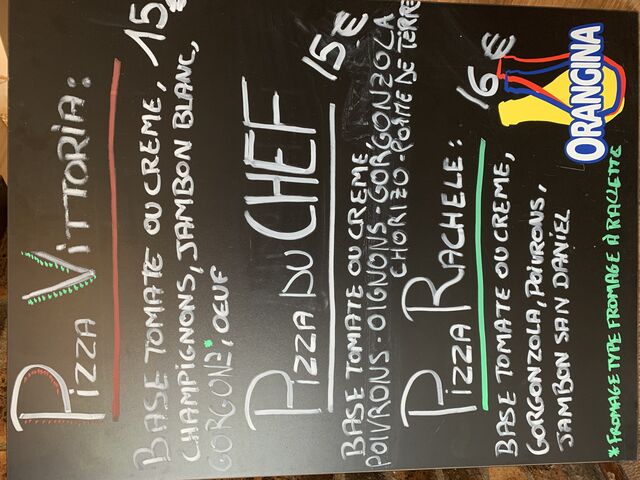 PIZZA VITTORIA:
BASE TOMATE OU CREME, 15€
CHAMPIGNONS, JAMBON BLANC,
GORGONZ*, OEUF
PIZZA DU CHEF 15€
BASE TOMATE OU CREME,
POIVRONS-OIGNONS-GORGONZOLA
CHORIZO-POMME DE TERRE
PIZZA RACHELE: 16€
BASE TOMATE OU CREME,
GORGONZOLA, POIVRONS,
JAMBON SAN DANIEL
ORANGINA
*FROMAGE TYPE FROMAGE A RACLETTE